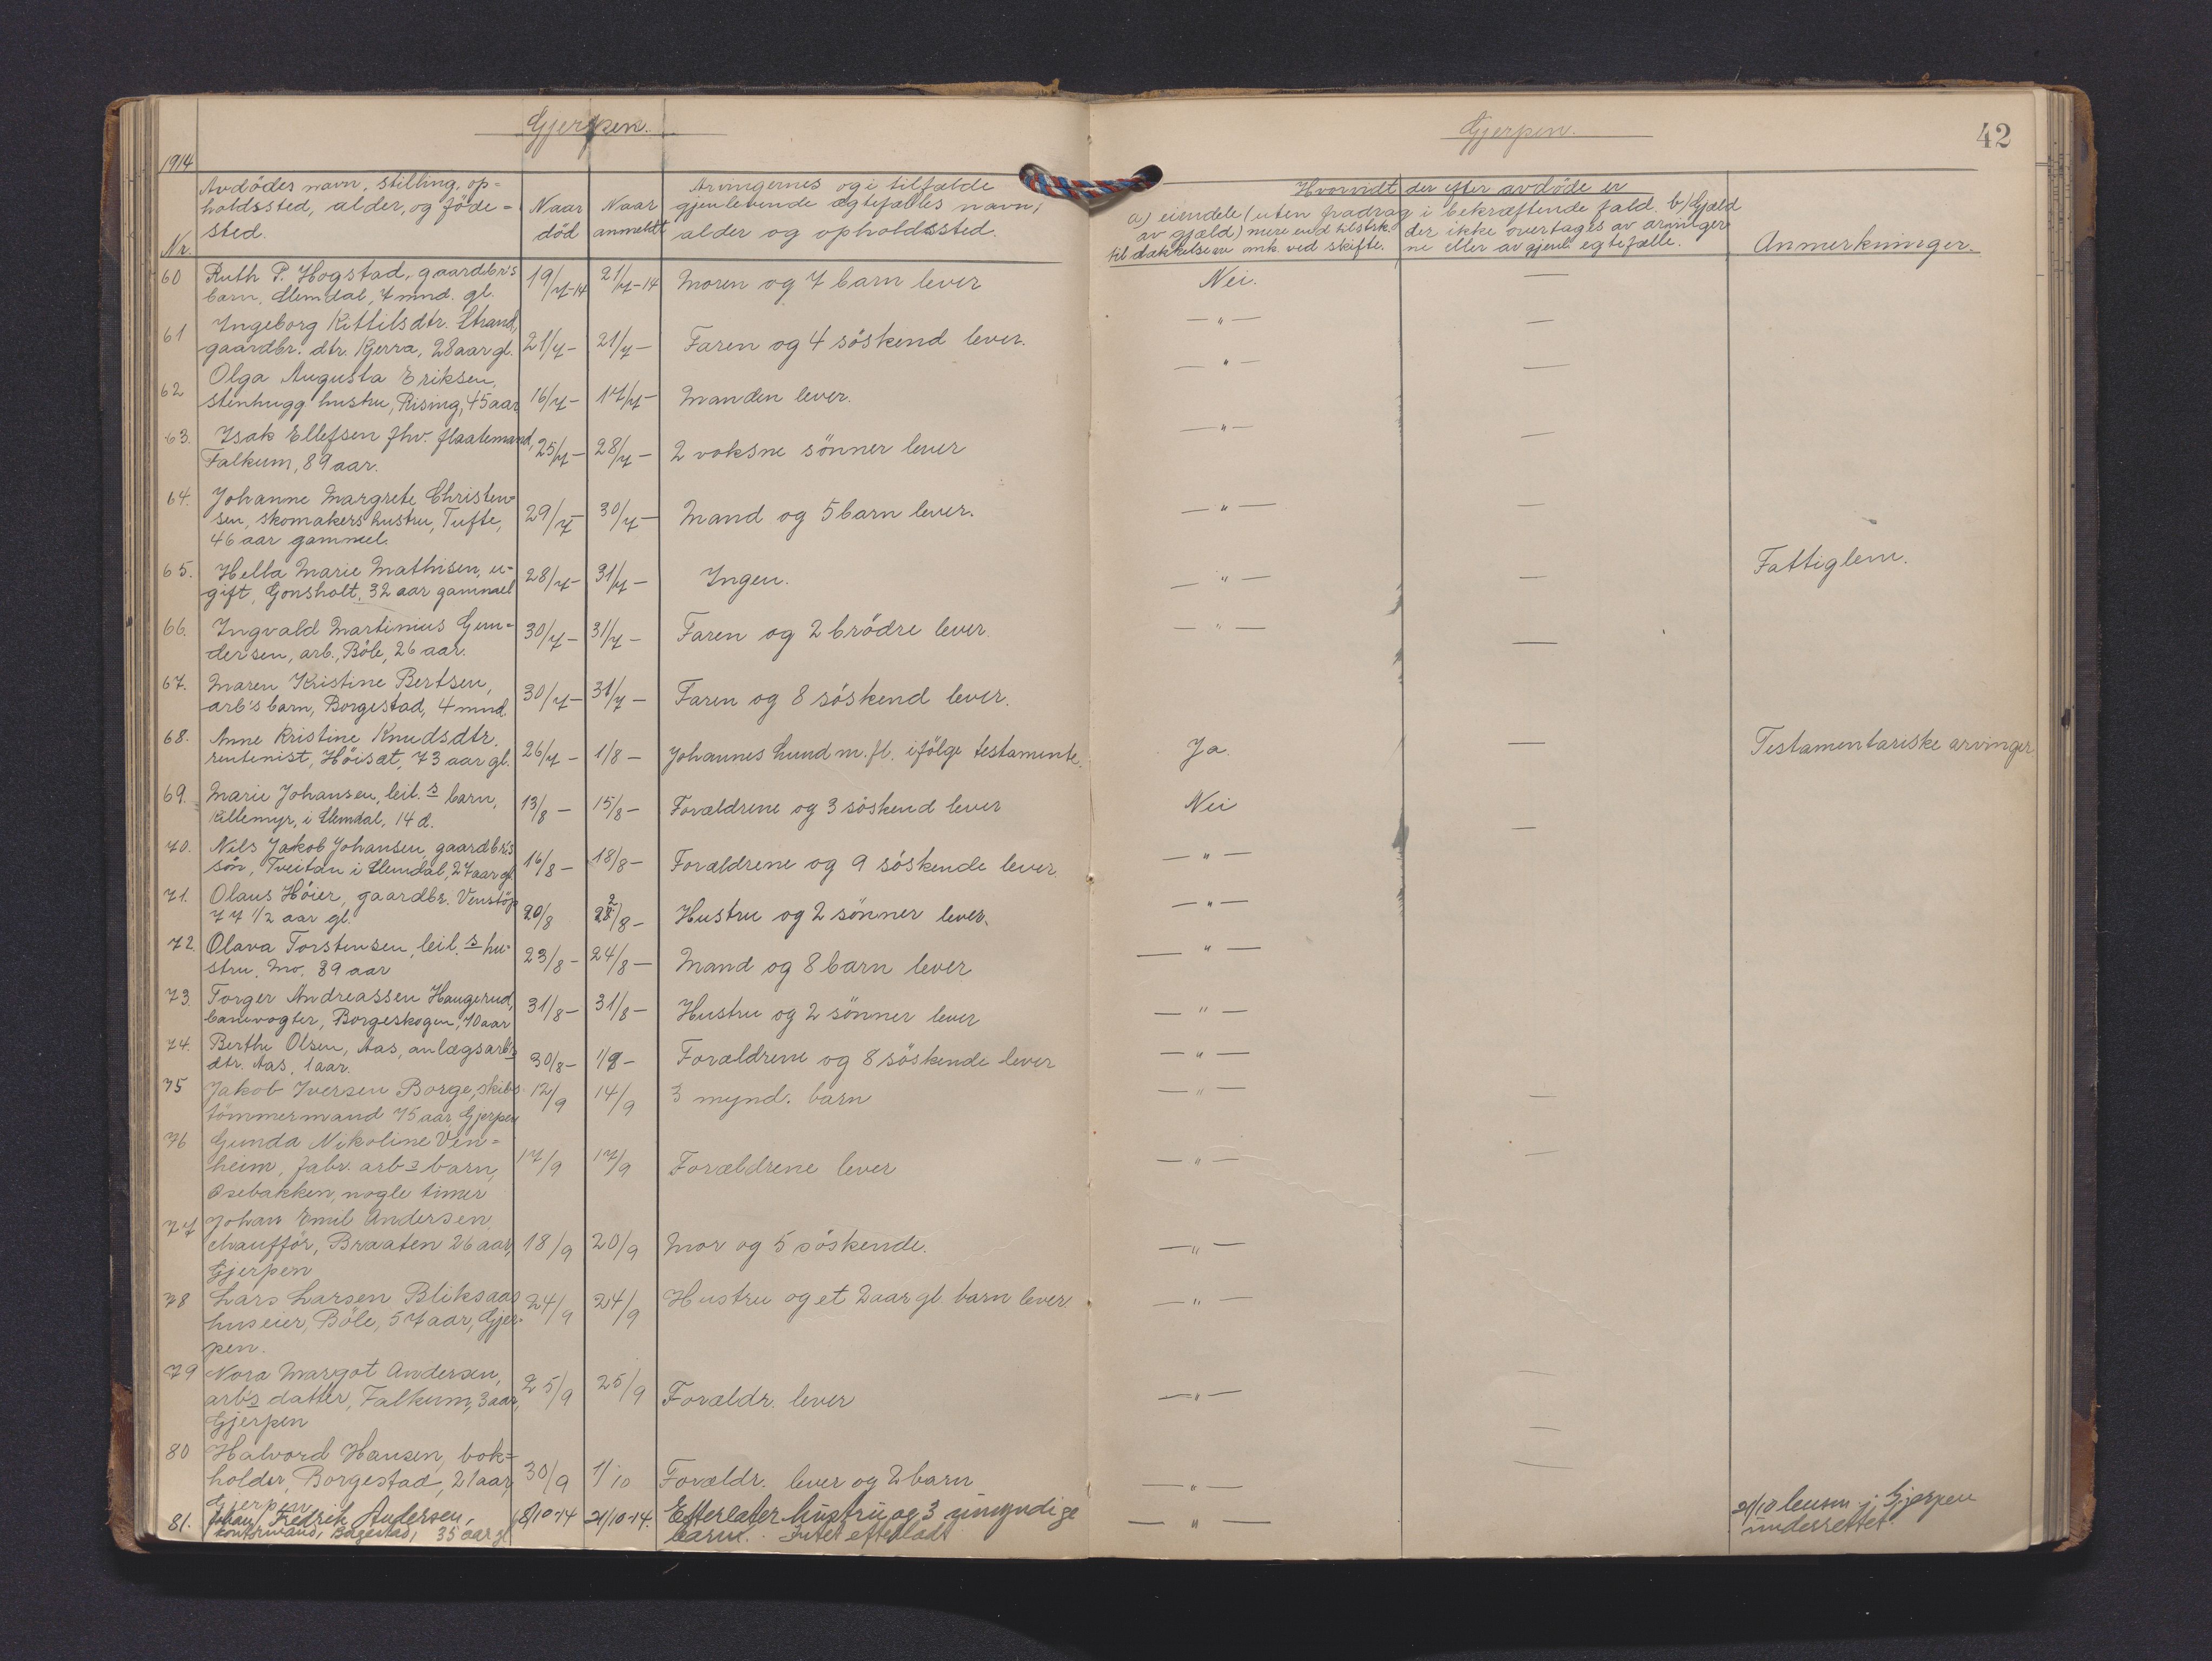 Gjerpen.
Gjerpen.
42
1914
Nr.
Avdødes navn, stilling, op=
holdssted, alder, og føde=
sted.
Naar
død
Naar
anmeldt
Arvingernes og i tilfælde
gjenlevende ægtefælles navn,
alder og opholdssted.
Hvorvidt der efter avdøde er
a) eiendele (uten fradrag i bekræftende fald. b) Gjæld
av gjæld) mere end tilstrk. der ikke overtages av arvinger
til dækkelse av omk. ved skifte. ne eller av gjenl. egtefælle.
Anmerkninger.
60 Ruth P. Hogstad, gaardbr's
barn, Slemdal, 7 mnd. gl. 19/7-14 21/7-14 Moren og 7 barn lever Nei. —
61 Ingeborg Kittilsdtr. Strand,
gaardbr. dtr. Kjerra, 28 aar gl. 21/7- 21/7- Faren og 4 søskend lever. —"— —
62 Olga Augusta Eriksen,
stenhugg hustru, Rising, 45 aar 16/7- 17/7- Manden lever. —"— —
63. Isak Ellefsen fhv. flaatemand,
Falkum, 89 aar. 25/7- 28/7- 2 voksne sønner lever —"— —
64. Johanne Margrete Christen=
sen, skomakers hustru, Tufte,
46 aar gammel. 29/7- 30/7- Mand og 5 barn lever. —"— —
65. Hella Marie Mathisen, u=
gift, Gonsholt, 32 aar gammel 28/7- 31/7- Ingen. —"— — Fattiglem.
66. Ingvald Martinius Gun=
dersen, arb., Bøle, 26 aar. 30/7- 31/7- Faren og 2 brødre lever. —"— —
67. Maren Kristine Bertsen,
arb's barn, Borgestad, 4 mnd. 30/7- 31/7- Faren og 8 søskend lever.
68. Anne Kristine Knudsdtr.
rentenist, Høisæt, 73 aar gl. 26/7- 1/8- Johannes Lund m. fl. ifølge testamente. Ja. — Testamentariske arvinger
69. Marie Johansen, leil.s barn,
Killemyr, i Slemdal, 14 d. 13/8- 15/8- Forældrene og 3 søskend lever Nei —
70. Nils Jakob Johansen, gaardbr's
søn, Tveitan i Slemdal, 27 aar gl. 16/8- 18/8- Forældrene og 9 søskende lever. —"—
71. Olaus Høier, gaardbr. Venstøp
77 1/2 aar gl. 20/8 22/8- Hustru og 2 sønner lever. —"—
72. Olava Torstensen, leil.s hu=
stru, Mo, 39 aar 23/8- 24/8- Mand og 8 barn lever —"—
73. Torger Andreassen Haugerud,
banevogter, Borgeskogen, 70 aar 31/8- 31/8- Hustru og 2 sønner lever —"—
74. Berthe Olsen, Aas, anlægsarb's
dtr. Aas, 1 aar. 30/8- 1/9- Forældrene og 8 søskende lever —"—
75 Jakob Iversen Borge, skibs
tømmermand 75 aar, Gjerpen 12/9 14/9 3 mynd. barn —"— —
76 Gunda Nikoline Ven=
heim, fabr. arb's barn,
Osebakken, nogle timer 17/9 17/9 Forældrene lever —"— —
77 Johan Emil Andersen,
chauffør, Braaten 26 aar,
Gjerpen 18/9 20/9 Mor og 5 søskende. —"—
78 Lars Larsen Bliksaas
huseier, Bøle, 57 aar, Gjer-
pen. 24/9 24/9 Hustru og et 2 aar gl. barn lever. —"—
79 Nora Margot Andersen,
arb's datter, Falkum, 3 aar,
Gjerpen 25/9 25/9 Forældr. lever —"— —
80 Halvord Hansen, bok=
holder, Borgestad, 21 aar,
Gjerpen 30/9 1/10 Forældr. lever og 2 barn —"— —
81. Johan Fredrik Andersen,
kontormand, Borgestad, 35 aar gl. 18/10-14 21/10-14. Efterlater hustru og 3 umyndige
barn. Intet efterladt —"— 21/10 lensm. i Gjerpen
underrettet.